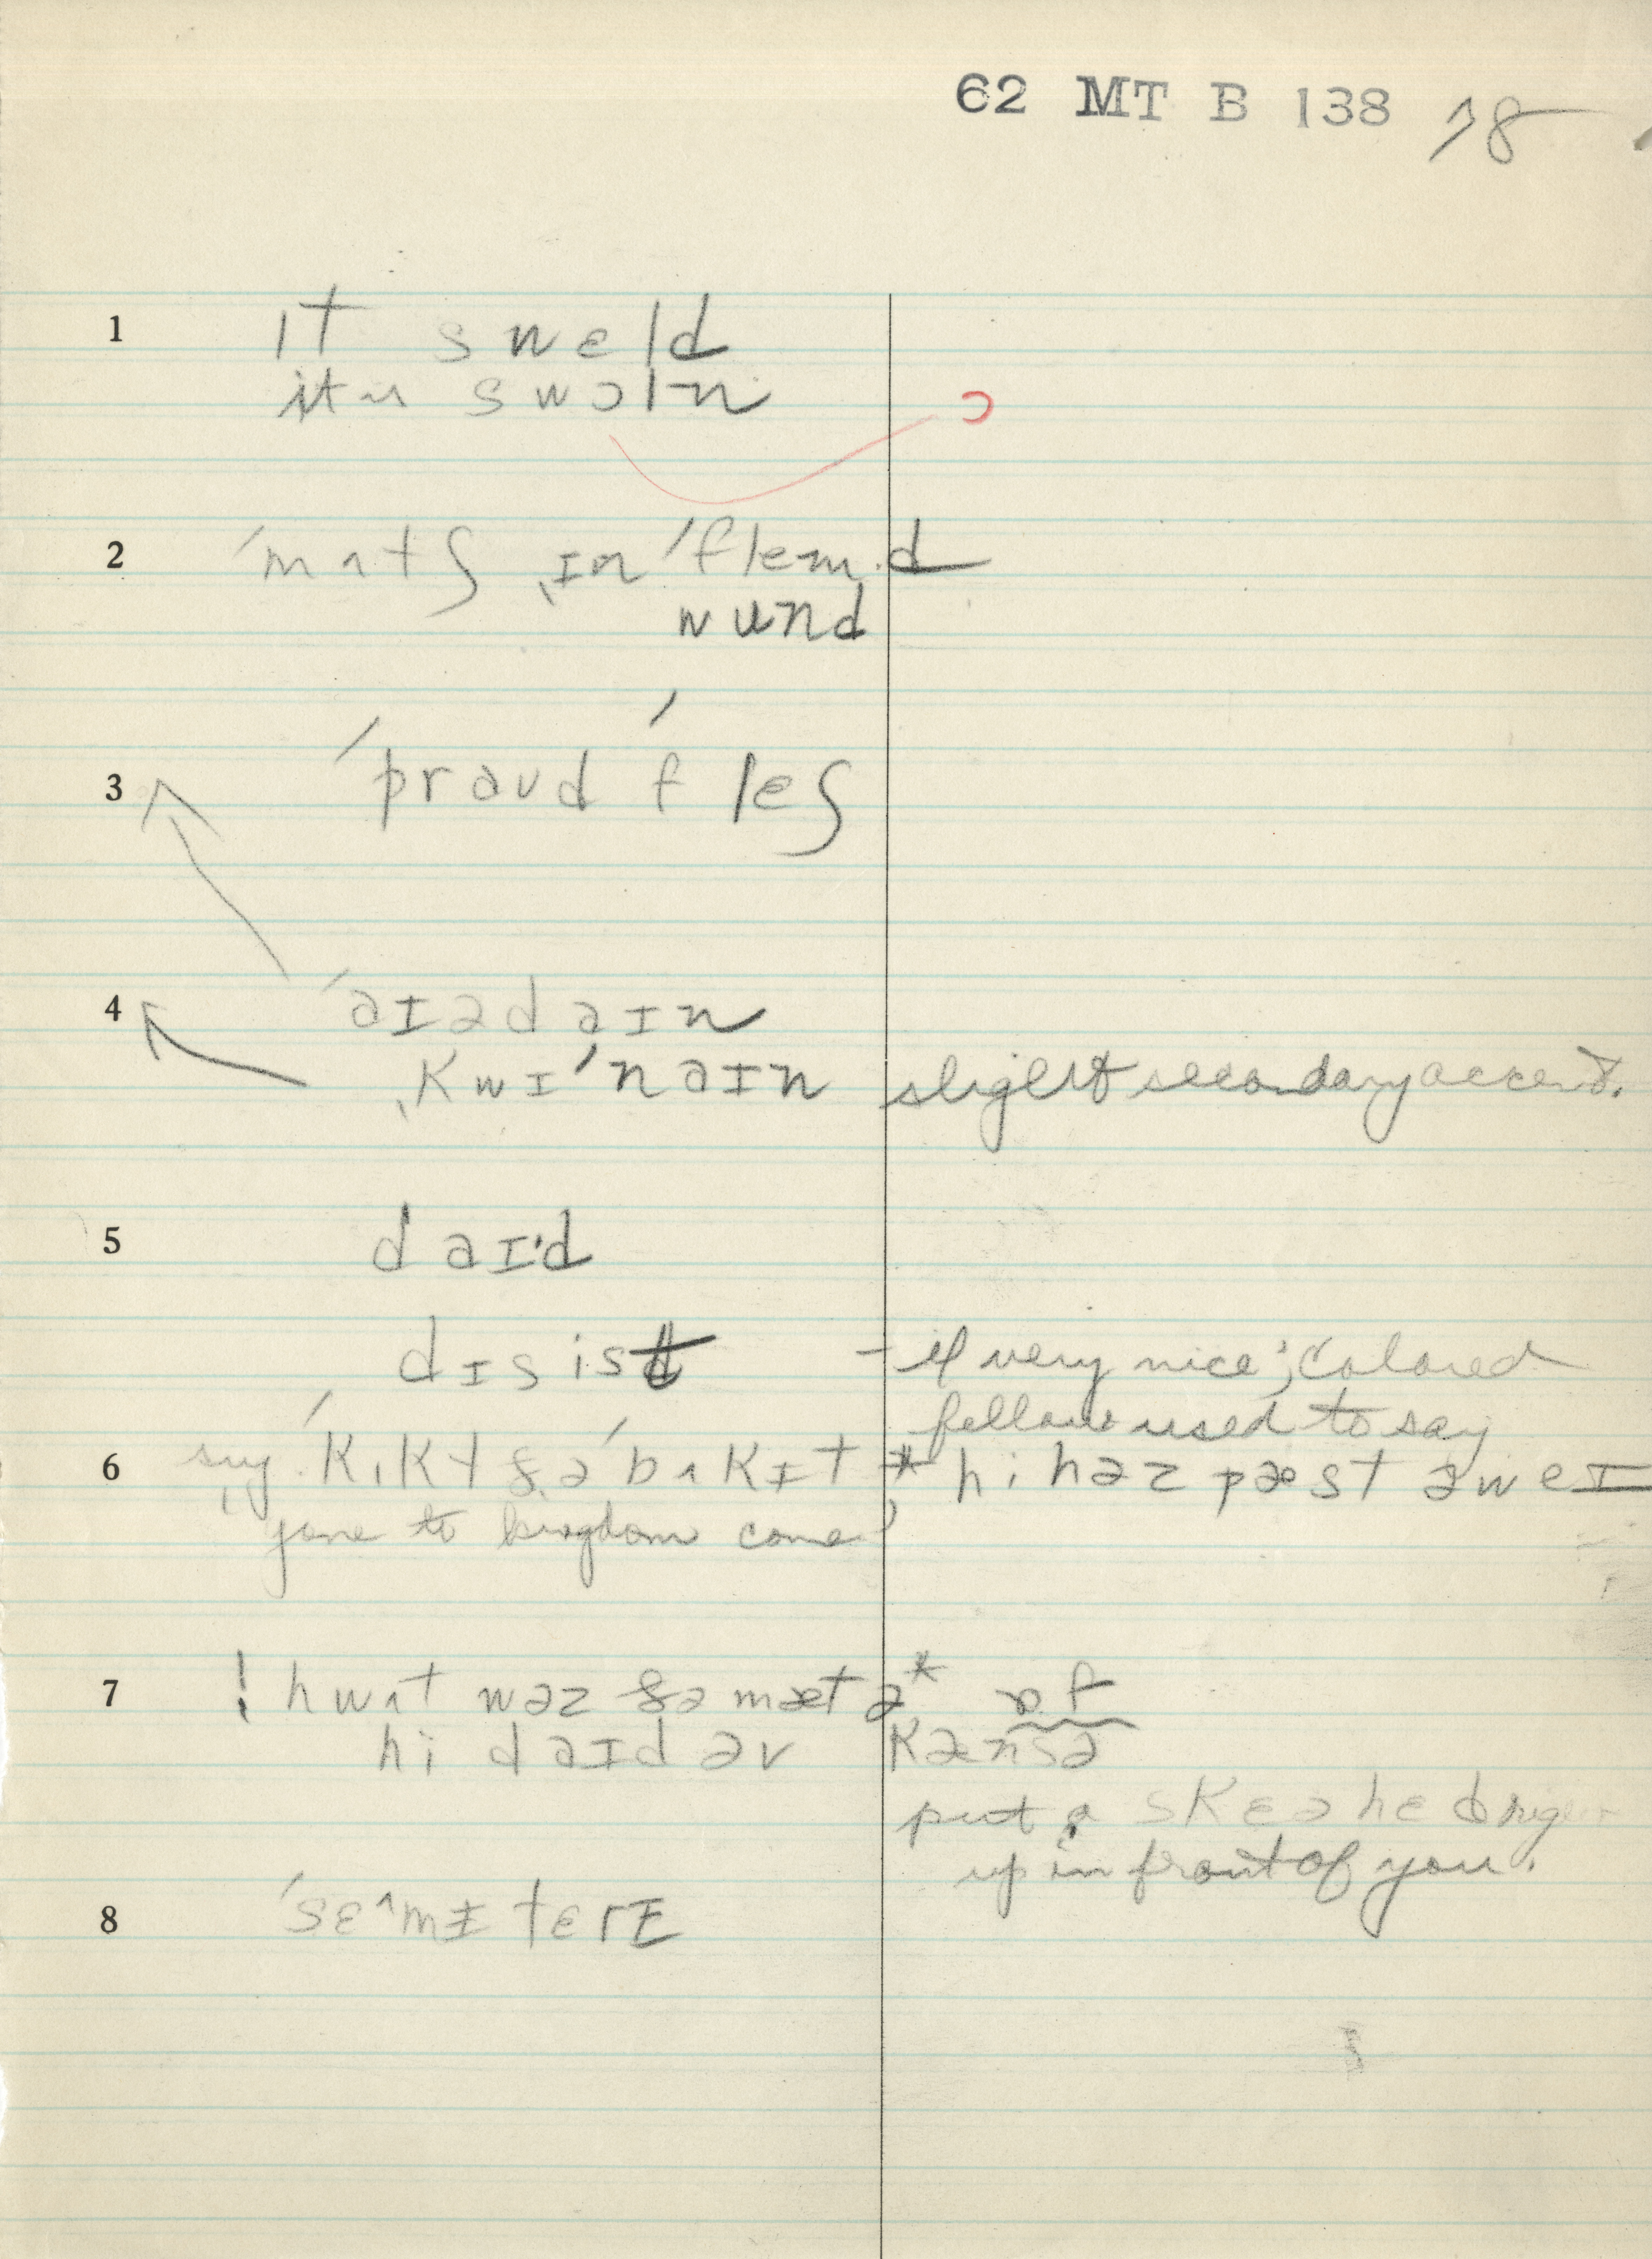 62 MT B 138 78
1 ɪt sweld
it is swɔln
ɔ
2 ˈmʌtʃ ˌɪnˈflemd
wund
3 ˈpraʊd ˈfleʃ
4 ˈaɪədaɪn
ˌkwɪˈnaɪn slight secondary accent.
5 daɪ·d
dɪsist - if very nice; colored
fellow used to say
6 say ˈkɪkt ðəˈbʌkɪt * hi həz pæst əweɪ
gone to kingdom come
7 ! hwʌt wəz ðə mætə* ɒf
hi daɪd əv kænsə
put a skɛəhed
up in front of you.
8 ˈsɛ^mɪtɛrɪ